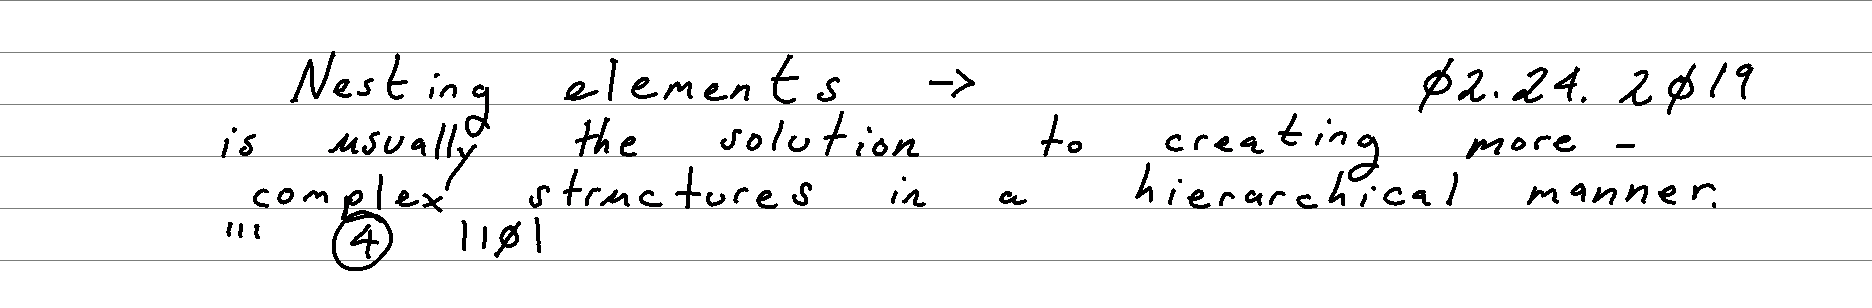 Nesting elements → 02.24.2019
is usually the solution to creating more -
complex structures in a hierarchical manner.
''' ④ 1101